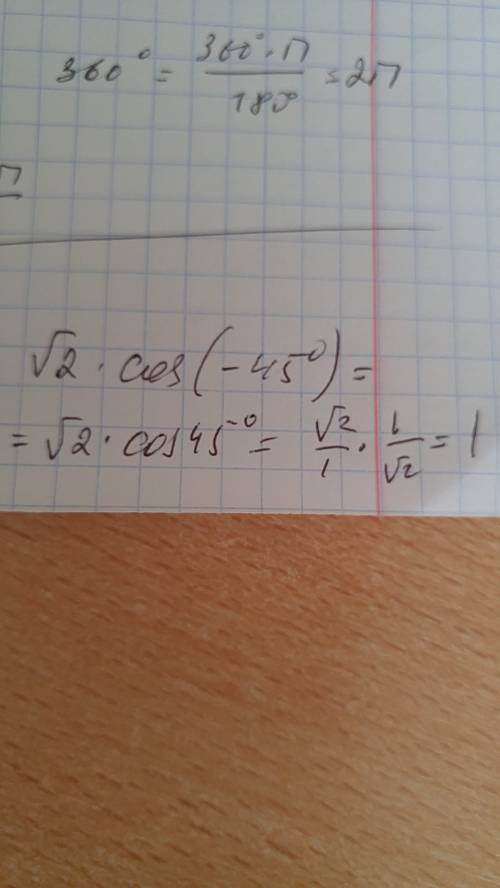 360° = 360°·П / 180° = 2П
П
√2 · cos(-45°) =
= √2 · cos45° = √2/1 · 1/√2 = 1